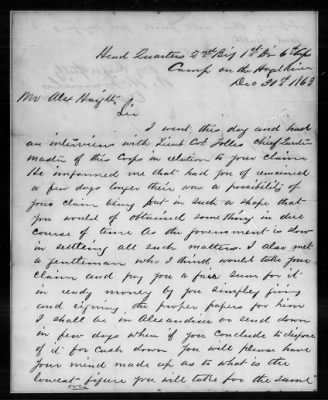 Head Quarters 2nd Brig 1st Div 6th Corps
Camp on the Hazel River
Dec 31st 1863
Mr Alex Haight
Sir
I went this day and had
an interview with Lieut Col Tolles Chief Quarter
master of this Corps in relation to your claim
He informed me that had you of remained
a few days longer their was a possibility of
your claim being put in such a shape that
you would of obtained something in due
course of time As the government is slow
in settling all such matters. I also met
a gentleman who I think would take your
claim and pay you a fair sum for it
in ready money by you simpley going
and signing the proper papers for him
I shall be in Alexandria or send down
in few days when if you conclude to dispose
of it for cash down you will please have
your mind made up as to what is the
lowest figure you will take for the same